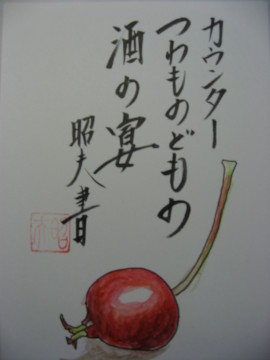 カウンター
つわものどもの
酒の宴
昭夫書